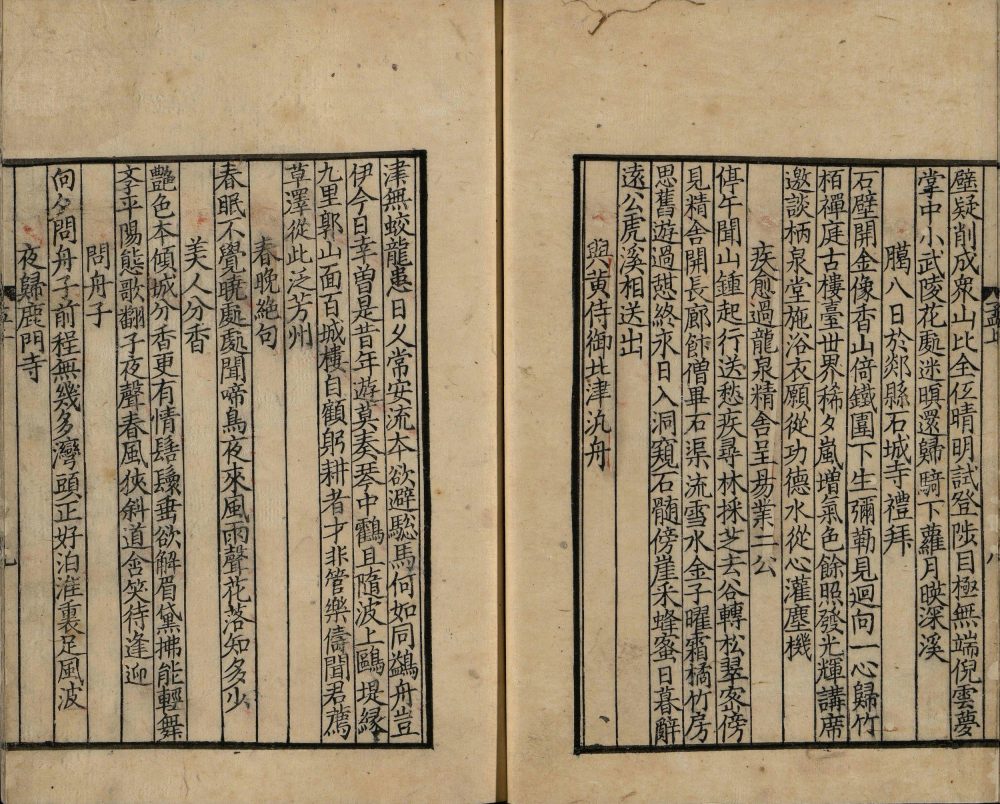 壁疑削成衆山比全仾晴明試登陟目極無端倪雲夢
掌中小武陵花處迷暝還歸騎下蘿月映深溪
臈八日於郯縣石城寺禮拜
石壁開金像香山倚鐵圍下生彌勒見迴向一心歸竹
栢禪庭古樓臺世界稀夕嵐增氣色餘照發光輝講席
邀談柄泉堂施浴衣願從功德水從心灌塵機
疾愈過龍泉精舍呈易業二公
停午聞山鍾起行送愁疾尋林採芝去谷轉松翠密傍
見精舍開長廊飰僧畢石渠流雪水金子曜霜橘竹房
思舊遊過憩終永日入洞窺石髓傍崖采蜂蜜日暮辭
遠公虎溪相送出
與黃侍御北津汎舟
津無蛟龍患日夕常安流本欲避驄馬何如同鷁舟豈
伊今日幸曽是昔年遊莫奏琴中鶴且隨波上鷗堤緣
九里郭山面百城樓自顧躬耕者才非管樂儔聞君薦
草澤從此泛芳州
春晚絶句
春眠不覺曉處處聞啼鳥夜來風雨聲花落知多少
美人分香
艶色本傾城分香更有情髻鬟垂欲解眉黛拂能輕舞
文子平陽態歌翻子夜聲春風狹斜道含笑待逢迎
問舟子
向夕問舟子前程無幾多灣頭正好泊淮裏足風波
夜歸鹿門寺